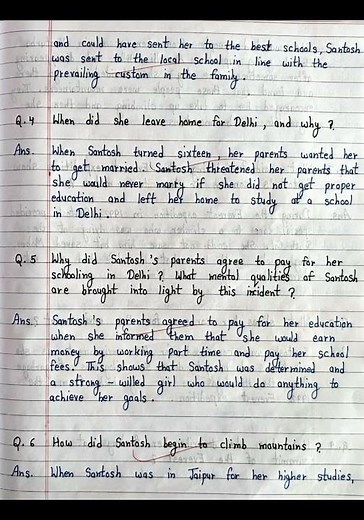 and could have sent her to the best schools, Santosh
was sent to the local school in line with the
prevailing custom in the family.
Q.4 When did she leave home for Delhi, and why?
Ans. When Santosh turned sixteen, her parents wanted her
to get married. Santosh threatened her parents that
she would never marry if she did not get proper
education and left her home to study at a school
in Delhi.
Q.5 Why did Santosh's parents agree to pay for her
schooling in Delhi? What mental qualities of Santosh
are brought into light by this incident?
Ans. Santosh's parents agreed to pay for her education
when she informed them that she would earn
money by working part time and pay her school
fees. This shows that Santosh was determined and
a strong-willed girl who would do anything to
achieve her goals.
Q.6 How did Santosh begin to climb mountains?
Ans. When Santosh was in Jaipur for her higher studies,